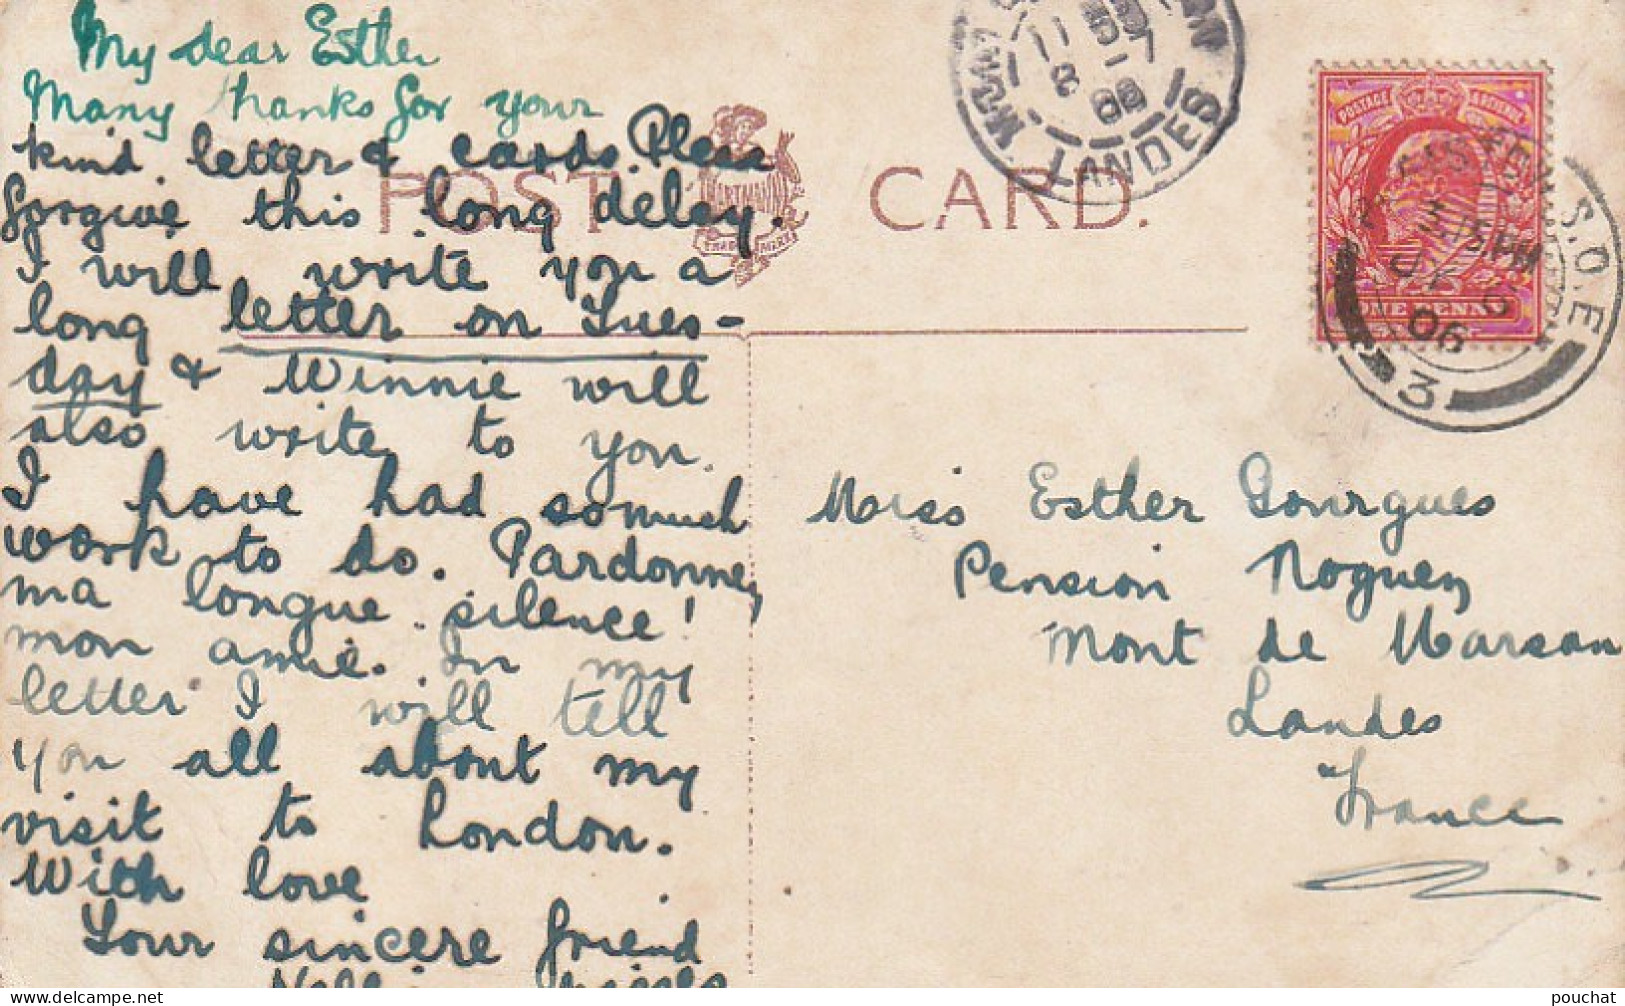 My dear Esther
Many thanks for your
kind letter & cards. Pleas
forgive this long delay.
I will write you a
long letter on Tues-
day & Winnie will
also write to you.
I have had so much
work to do. Pardonnez
ma longue silence!
mon amie. In my
letter I will tell
you all about my
visit to London.
With love
Your sincere friend
POST CARD.
HARTMANN
TRADE MARK
LANDES
11
8
POSTAGE
ONE PENNY
S.O.E
3.15 PM
06
3
Miss Esther Gourgues
Pension Noguez
Mont de Marsan
Landes
France
pouchat